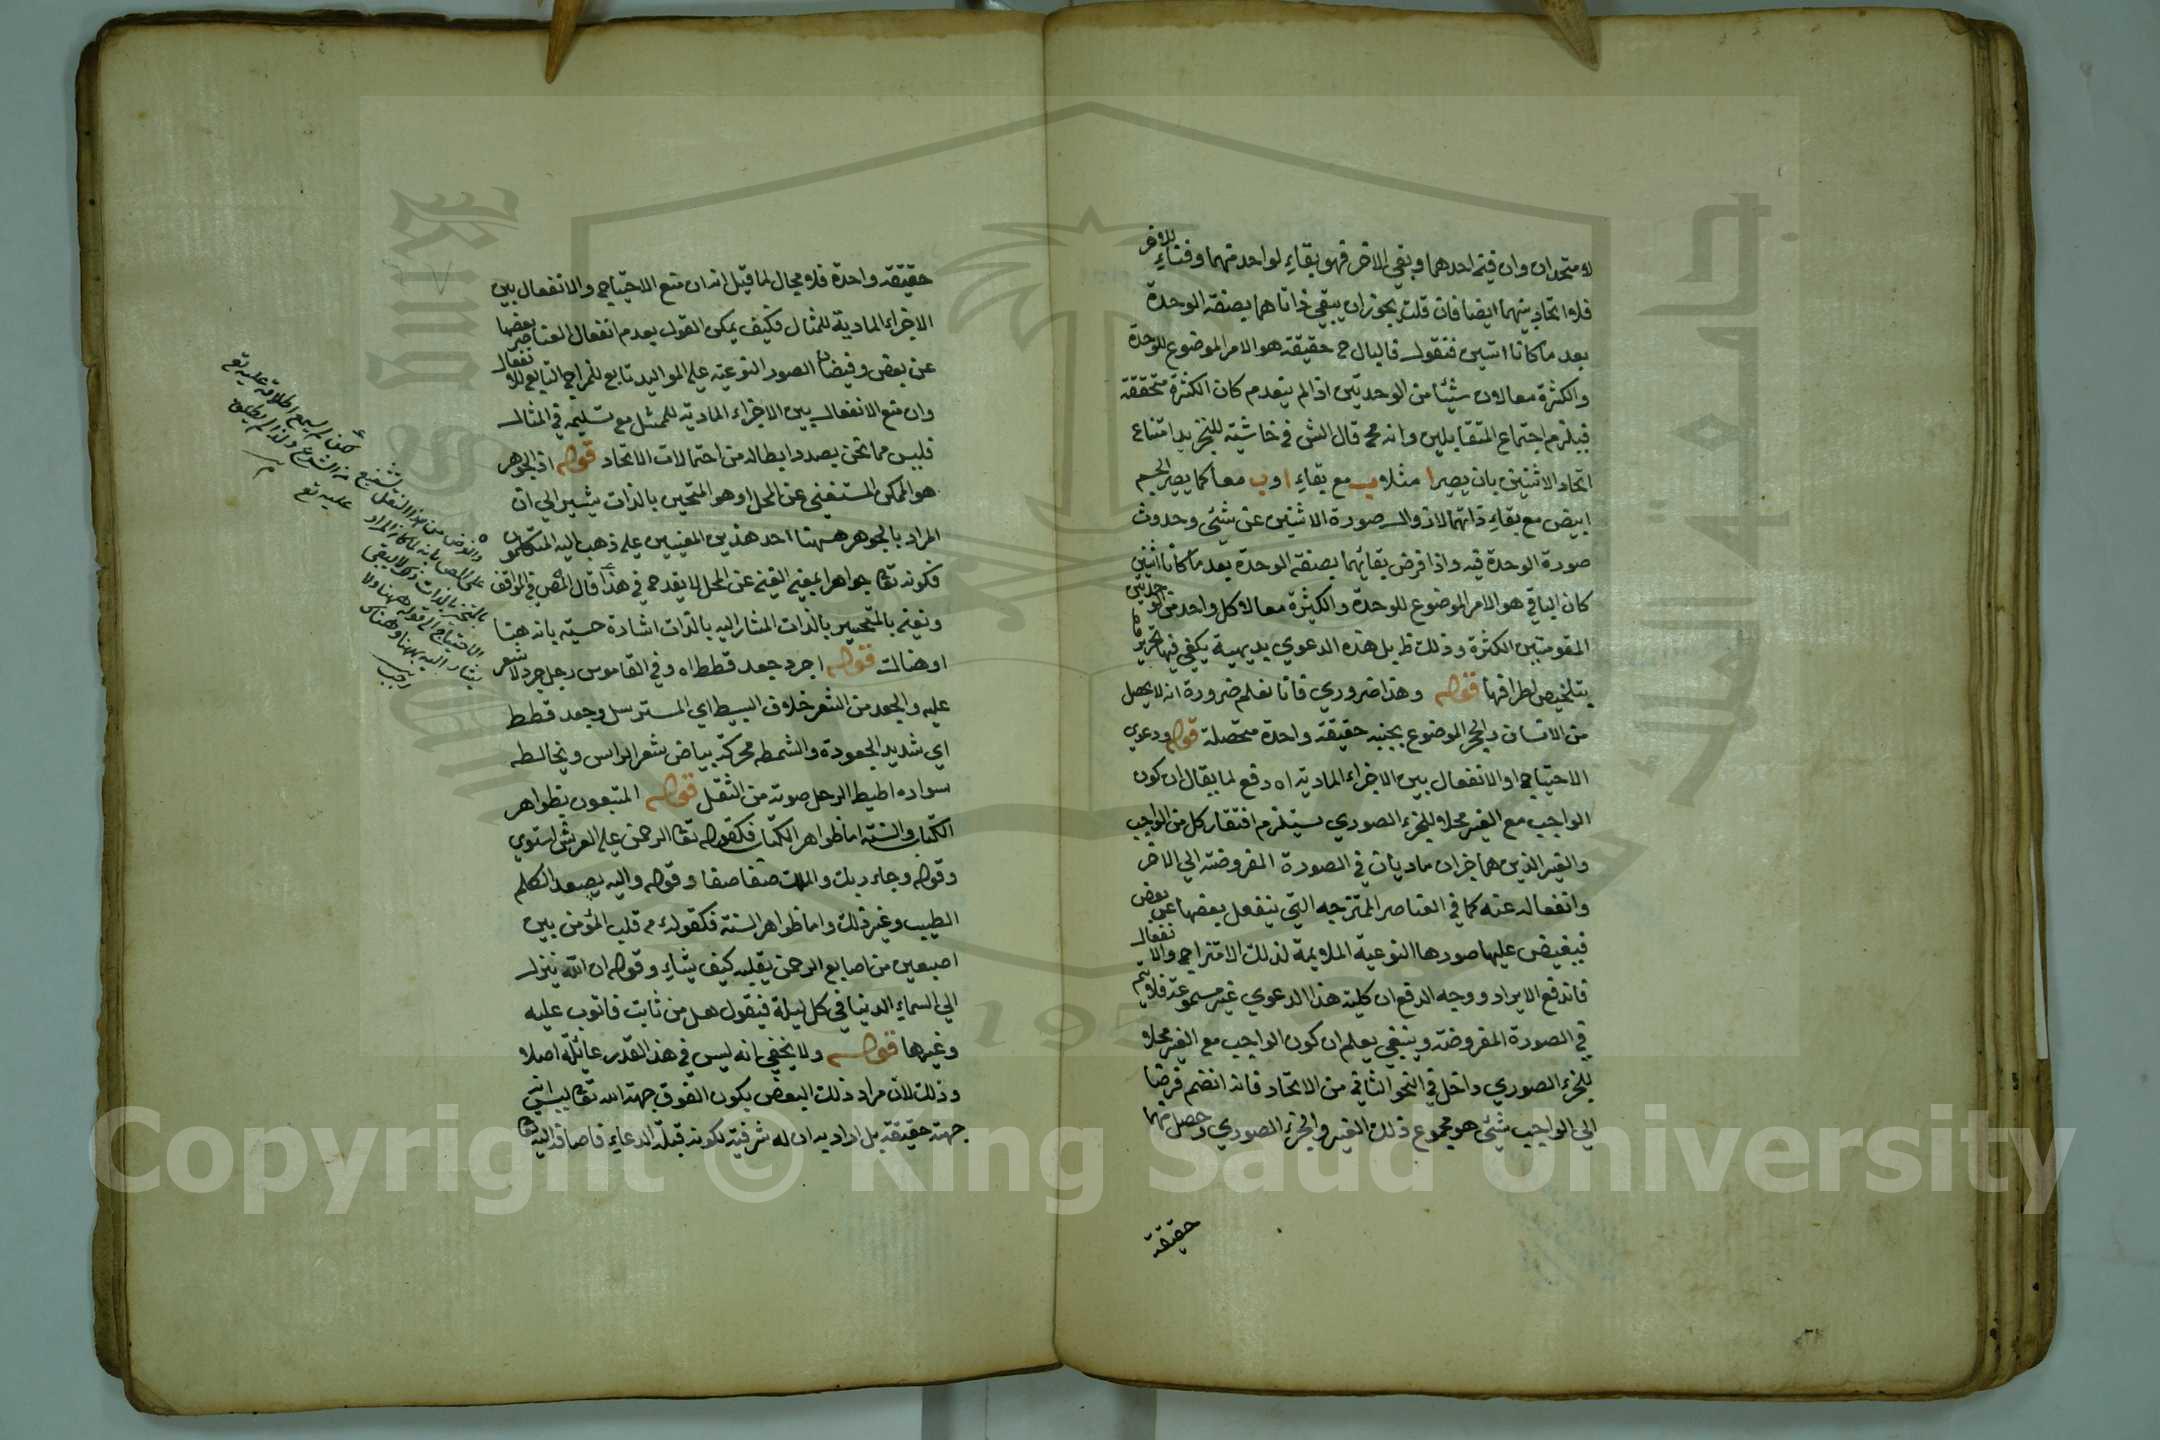 لا متحدان وان فني احدهما وبقي الاخر فهو بقاء لواحد منهما وفناء للاخر
فلا اتحاد بينهما ايضا فان قلت يجوز ان يبقي ذاتاهما بصفة الوحدة
بعد ما كانا اثنين فنقول فالباقي ح حقيقة هو الامر الموضوع للوحدة
والكثرة معا لان شيئا من الوحدتين اذا لم ينعدم كان الكثرة متحققة
فيلزم اجتماع المتقابلين وانه مح قال الش في حاشية للتجريد امتناع
اتحاد الاثنين بان يصير ا مثلا ب مع بقاء ا وب معا كما يصير الجسم
ابيض مع بقاء ذاتهما لا زوال صورة الاثنين عن شئ وحدوث
صورة الوحدة فيه واذا فرض بقائهما بصفة الوحدة بعد ما كانا اثنين
كان الباقي هو الامر الموضوع للوحدة والكثرة معا لا كل واحد من الوحدتين
المقومتين الكثرة وذلك ظ بل هذه الدعوي بديهية يكفي فيها تحريرها
بتلخيص اطرافها قوله وهذا ضروري فانا نعلم ضرورة انه لا يحصل
من الانسان والحجر الموضوع بجنبه حقيقة واحدة متحصلة قوله ودعوي
الاحتياج او الانفعال بين الاجزاء المادية اه دفع لما يقال ان كون
الواجب مع الغير محلا للجزء الصوري يستلزم افتقار كل من الواجب
والغير الذين هما جزان ماديان في الصورة المفروضة الي الاخر
وانفعاله عنه كما في العناصر الممتزجه التي ينفعل بعضها عن بعض
فيفيض عليها صورها النوعية الملايمة لذلك الامتزاج والانفعال
فاندفع الايراد ووجه الدفع ان كلية هذا الدعوي غير مسموعة فلا يتم
في الصورة المفروضة وينبغي يعلم ان كون الواجب مع الغير محلا
للجزء الصوري داخل في النحو الثاني من الاتحاد فانه انضم فرضا
الي الواجب شئ هو مجموع ذلك الغير والجزء الصوري وحصل منهما
حقيقة
حقيقة واحدة فلا مجال لما قيل انه ان منع الاحتياج والانفعال بين
الاجزاء المادية للمثال فكيف يمكن القول بعدم انفعال العناصر بعضها
عن بعض وفيضان الصور النوعية علي المواليد تابع للمزاج التابع للانفعال
وان منع الانفعال بين الاجزاء المادية للممثل مع تسليمه في المثال
فليس مما نحن بصدد ابطاله من احتمالات الاتحاد قوله اذ الجوهر
هو الممكن المستغني عن المحل او هو المتحيز بالذات يشير الي ان
المراد بالجوهر ههنا احد هذين المعنيين علي ذهب اليه المتكلمون
فكونه تعا جواهرا بمعني الغني عن المحل لا يقدح في هذا قال المص في المواقف
ونعني بالمتحيز بالذات المشار اليه بالذات اشارة حسية بانه هنا
او هنالك قوله اجرد جعد قطط اه وفي القاموس رجل اجرد لا شعر
عليه والجعد من الشعر خلاف البسيط اي المسترسل وجعد قطط
اي شديد الجعودة والشمط محركة بياض شعر الراس ويخالطه
سواده اطيط الرحل صوته من الثقل قوله المتبعون بظواهر
الكتاب والسنة اما ظواهر الكتاب فكقوله تعا الرحمن علي العرش استوي
وقوله وجاء ربك والملك صفا صفا وقوله واليه يصعد الكلم
الطيب وغير ذلك واما ظواهر السنة فكقوله ع م قلب المؤمن بين
اصبعين من اصابع الرحمن يقلبه كيف يشاء وقوله ان الله ينزل
الي السماء الدنيا في كل ليلة فيقول هل من ثابت فاتوب عليه
وغيرها قوله ولا يخفي انه ليس في هذا القدر عائلة اصلا
وذلك لان مراد ذلك البعض بكون الفوق جهة الله تعا ليس انه
جهته حقيقة بل اراد به ان له شرفية لكونه قبلة الدعاء فاضافة اليه تعا
لم يسمع اطلاقه عليه تع
عليه تع
والغرض من هذا النقل
على المص بانه لما كان المراد
بالتحيز بالذات ذلك لا يبقي
الاحتياج الي قوله ههنا ولا
يشار اليه بههنا وهناك
Copyright © King Saud University
1957